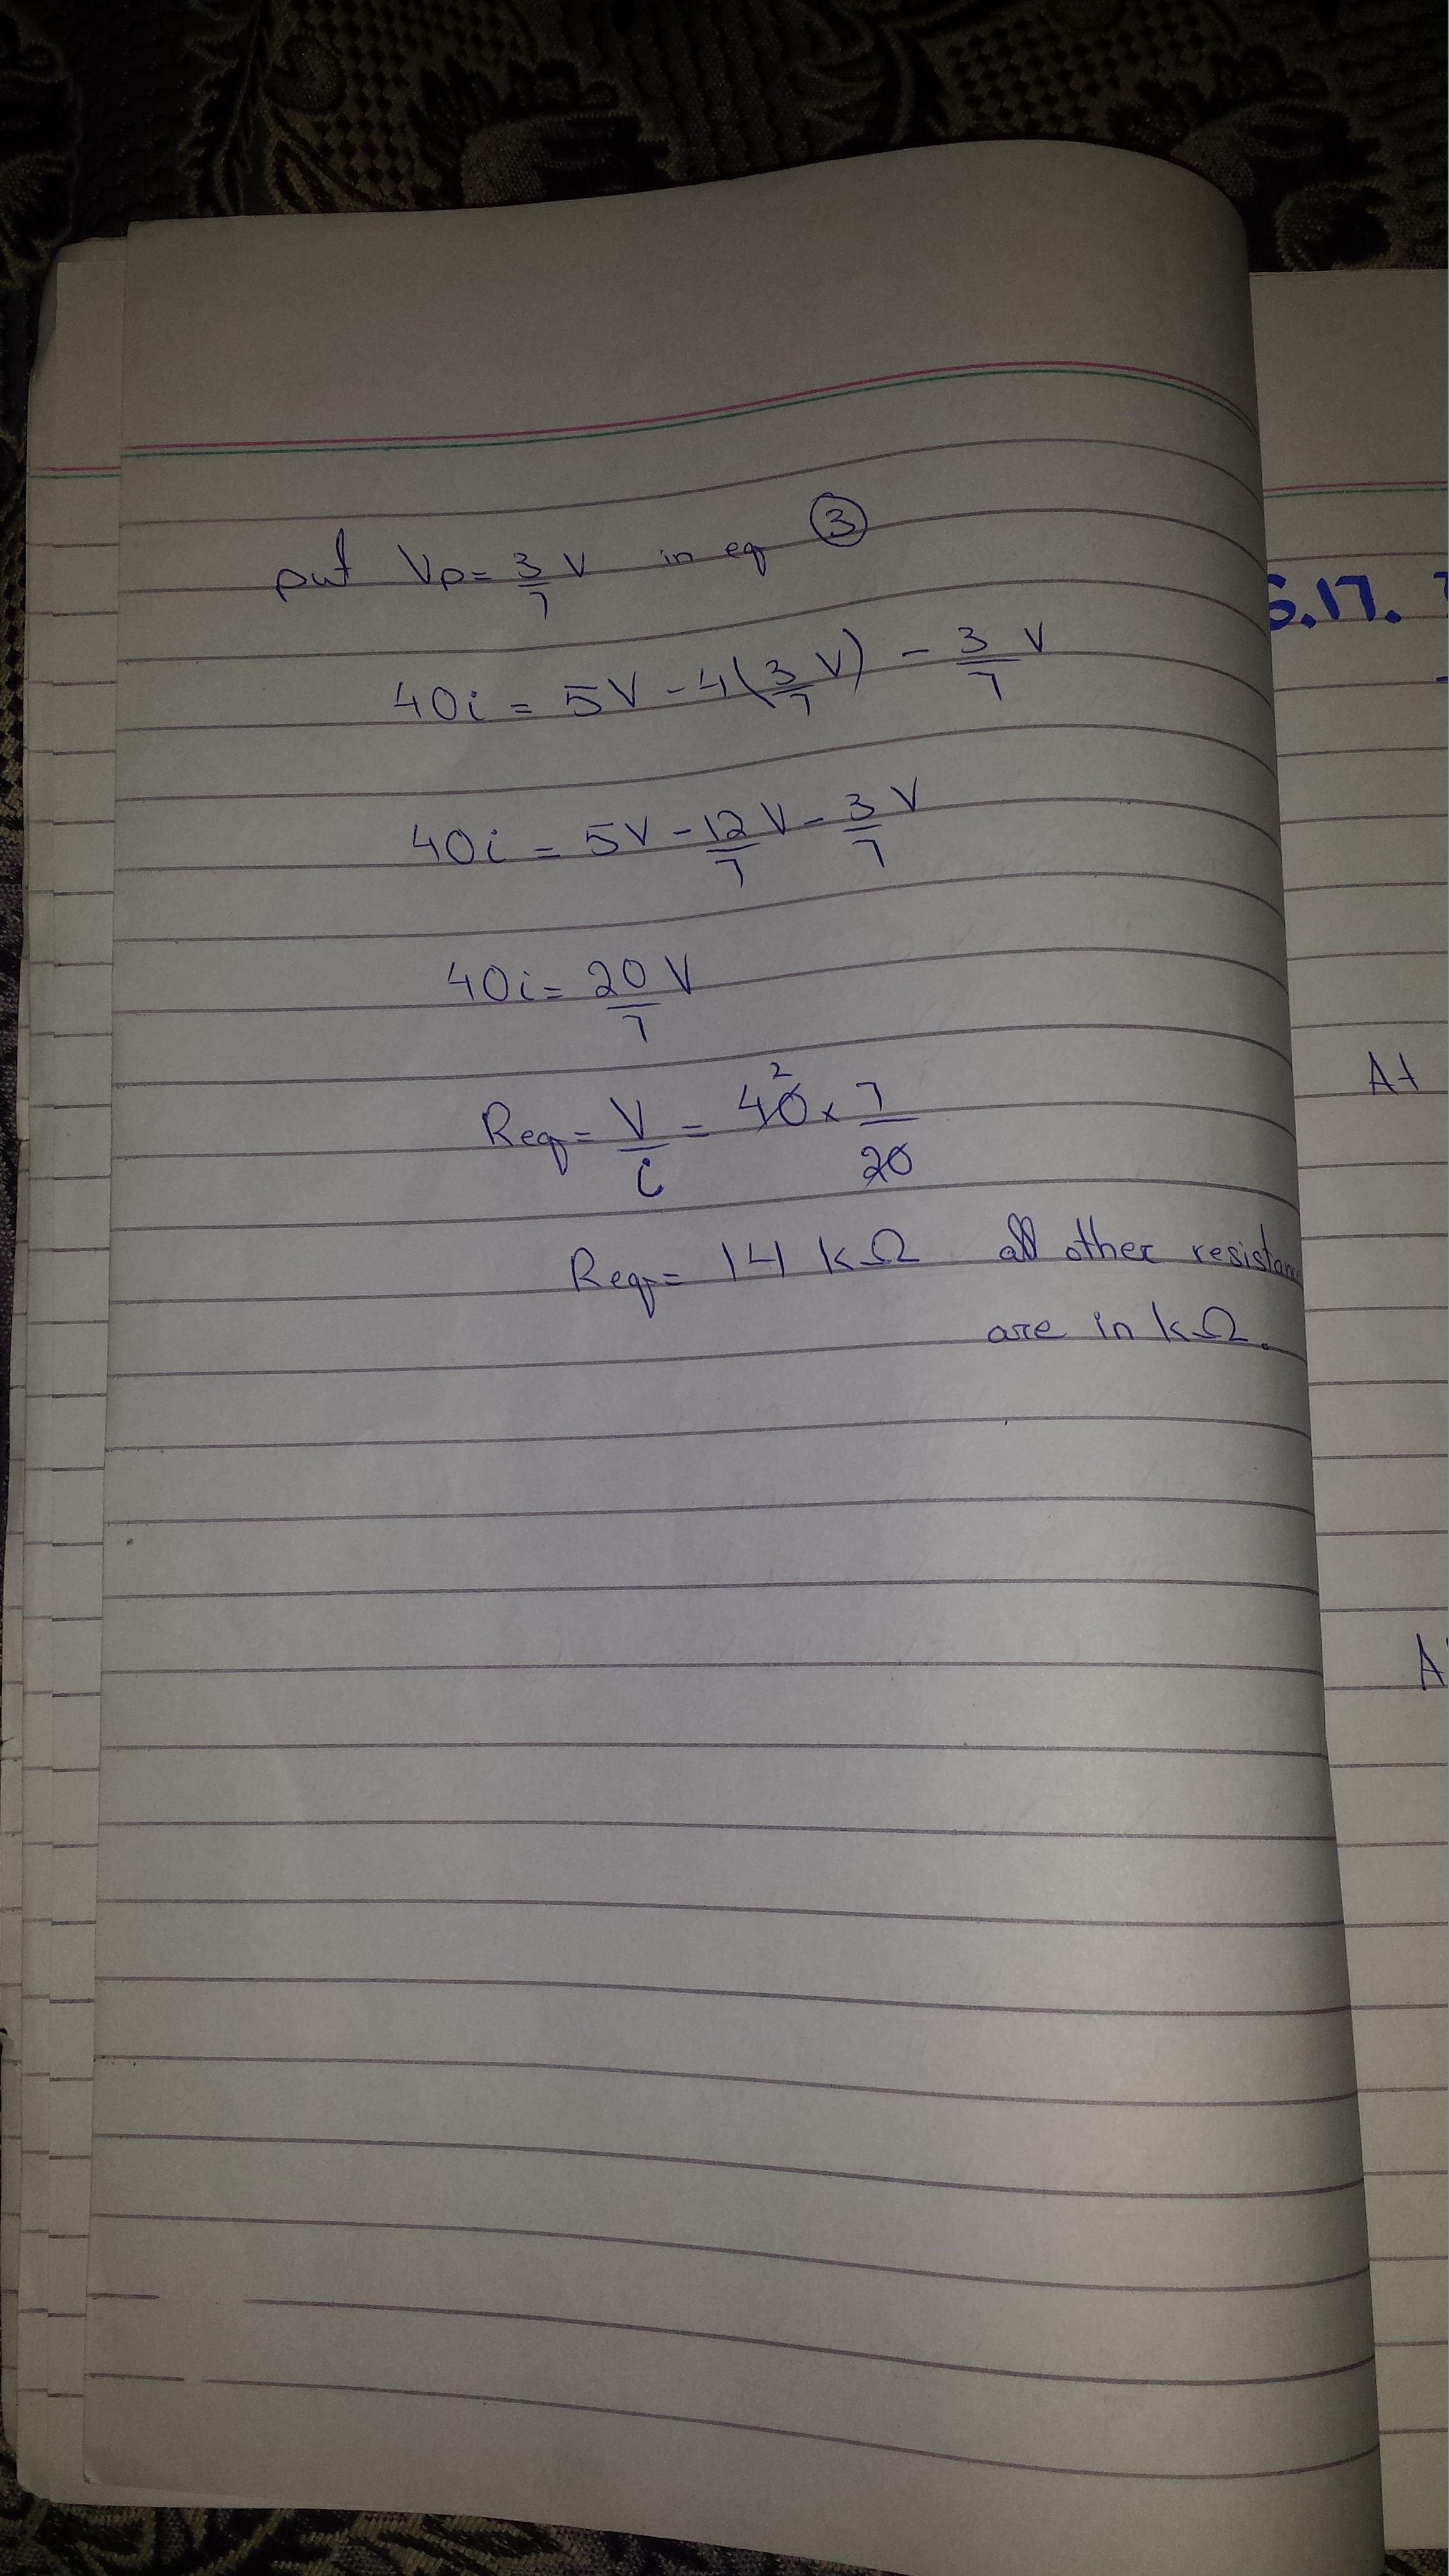 put Vp = 3/7 V in eq ③
40i = 5V - 4(3/7 V) - 3/7 V
40i = 5V - 12/7 V - 3/7 V
40i = 20/7 V
Req = V/i = 40 2 × 7/20
Req = 14 kΩ all other resistanc
are in kΩ.
5.17.
At
A